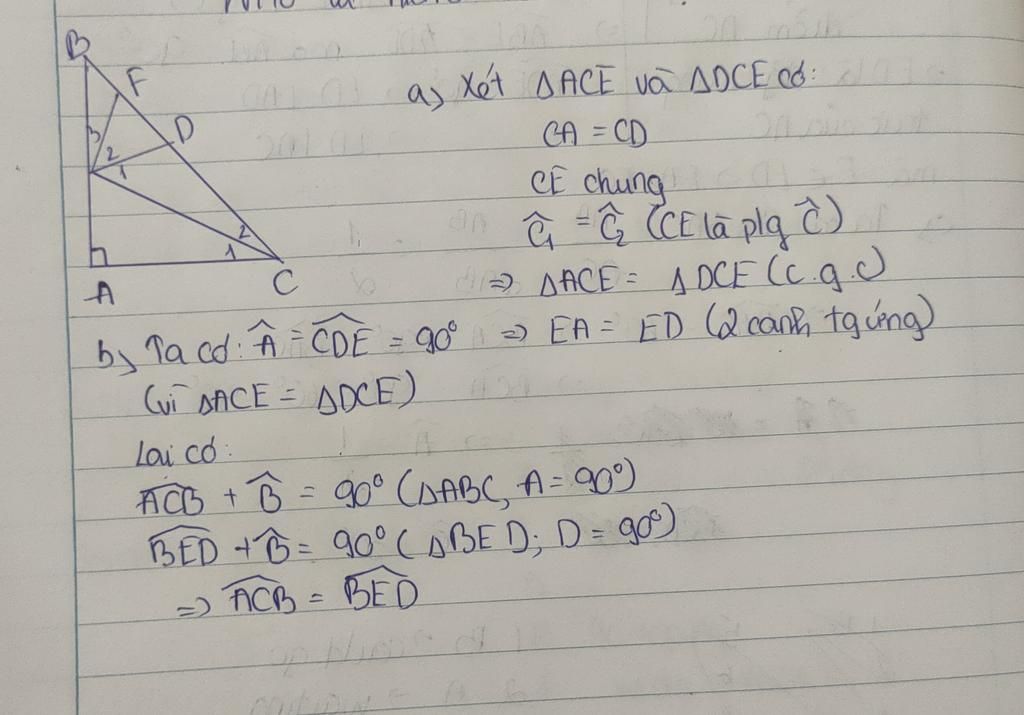 B
F
D
3
2
1
2
1
A
C
a, Xét ΔACE và ΔDCE có:
CA = CD
CE chung
Ĉ₁ = Ĉ₂ (CE là p/g Ĉ)
=> ΔACE = ΔDCE (c.g.c)
b, Ta có: Â = \widehat{CDE} = 90° => EA = ED (2 cạnh tg ứng)
(vì ΔACE = ΔDCE)
Lại có:
\widehat{ACB} + \widehat{B} = 90° (ΔABC, A = 90°)
\widehat{BED} + \widehat{B} = 90° (ΔBED; D = 90°)
=> \widehat{ACB} = \widehat{BED}